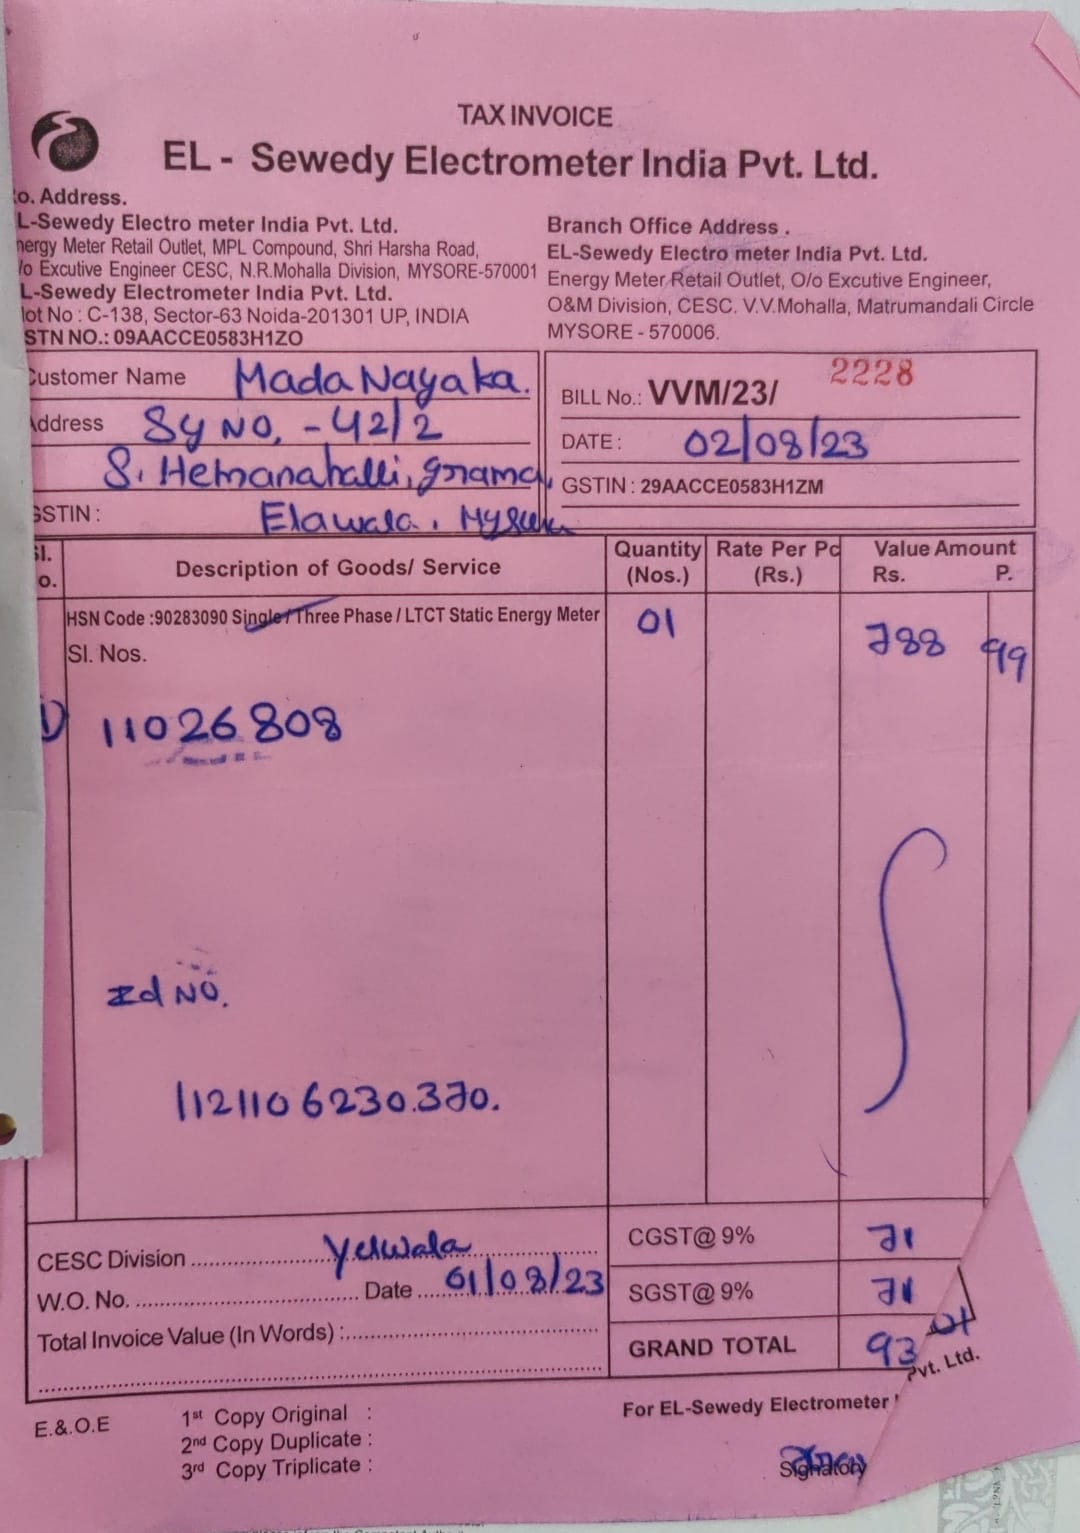 TAX INVOICE
EL - Sewedy Electrometer India Pvt. Ltd.
o. Address.
L-Sewedy Electro meter India Pvt. Ltd.
nergy Meter Retail Outlet, MPL Compound, Shri Harsha Road,
/o Excutive Engineer CESC, N.R.Mohalla Division, MYSORE-570001
L-Sewedy Electrometer India Pvt. Ltd.
lot No : C-138, Sector-63 Noida-201301 UP, INDIA
STN NO.: 09AACCE0583H1ZO
Branch Office Address .
EL-Sewedy Electro meter India Pvt. Ltd.
Energy Meter Retail Outlet, O/o Excutive Engineer,
O&M Division, CESC. V.V.Mohalla, Matrumandali Circle
MYSORE - 570006.
Customer Name Mada Nayaka.
Address Sy NO, - 42/2
S. Hemanahalli, grama,
GSTIN : Elawala, Mysuru
BILL No.: VVM/23/ 2228
DATE : 02/08/23
GSTIN : 29AACCE0583H1ZM
Sl. o. Description of Goods/ Service Quantity (Nos.) Rate Per Pc (Rs.) Value Amount Rs. P.
HSN Code :90283090 Single / Three Phase / LTCT Static Energy Meter 01 788 99
Sl. Nos.
1) 11026808
Id NO.
1121106230370.
CESC Division Yelwala
W.O. No. Date 01/08/23
Total Invoice Value (In Words) :
CGST@ 9% 71
SGST@ 9% 71
GRAND TOTAL 93
Pvt. Ltd.
E.&.O.E
1st Copy Original :
2nd Copy Duplicate :
3rd Copy Triplicate :
For EL-Sewedy Electrometer
Signatory